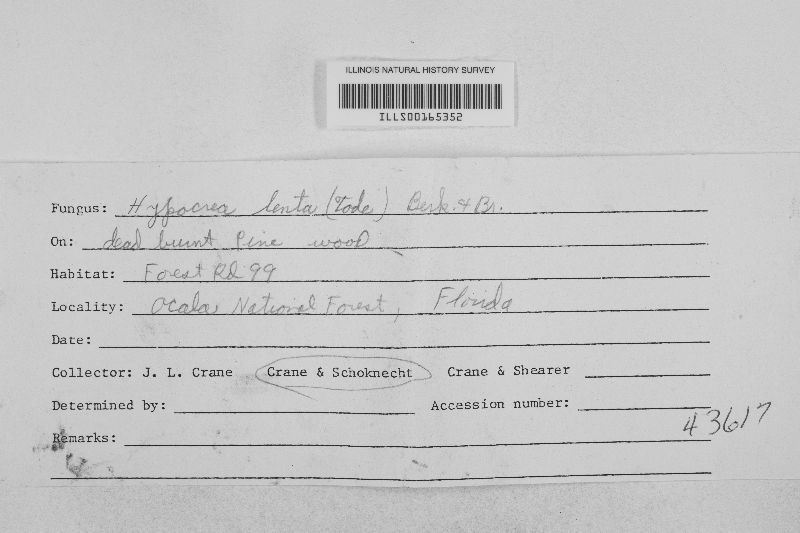 ILLINOIS NATURAL HISTORY SURVEY
ILLS00165352
Fungus: Hypocrea lenta (Tode) Berk. & Br.
On: dead burnt Pine wood
Habitat: Forest Rd 99
Locality: Ocala National Forest, Florida
Date:
Collector: J. L. Crane Crane & Schoknecht Crane & Shearer
Determined by: Accession number:
43617
Remarks: